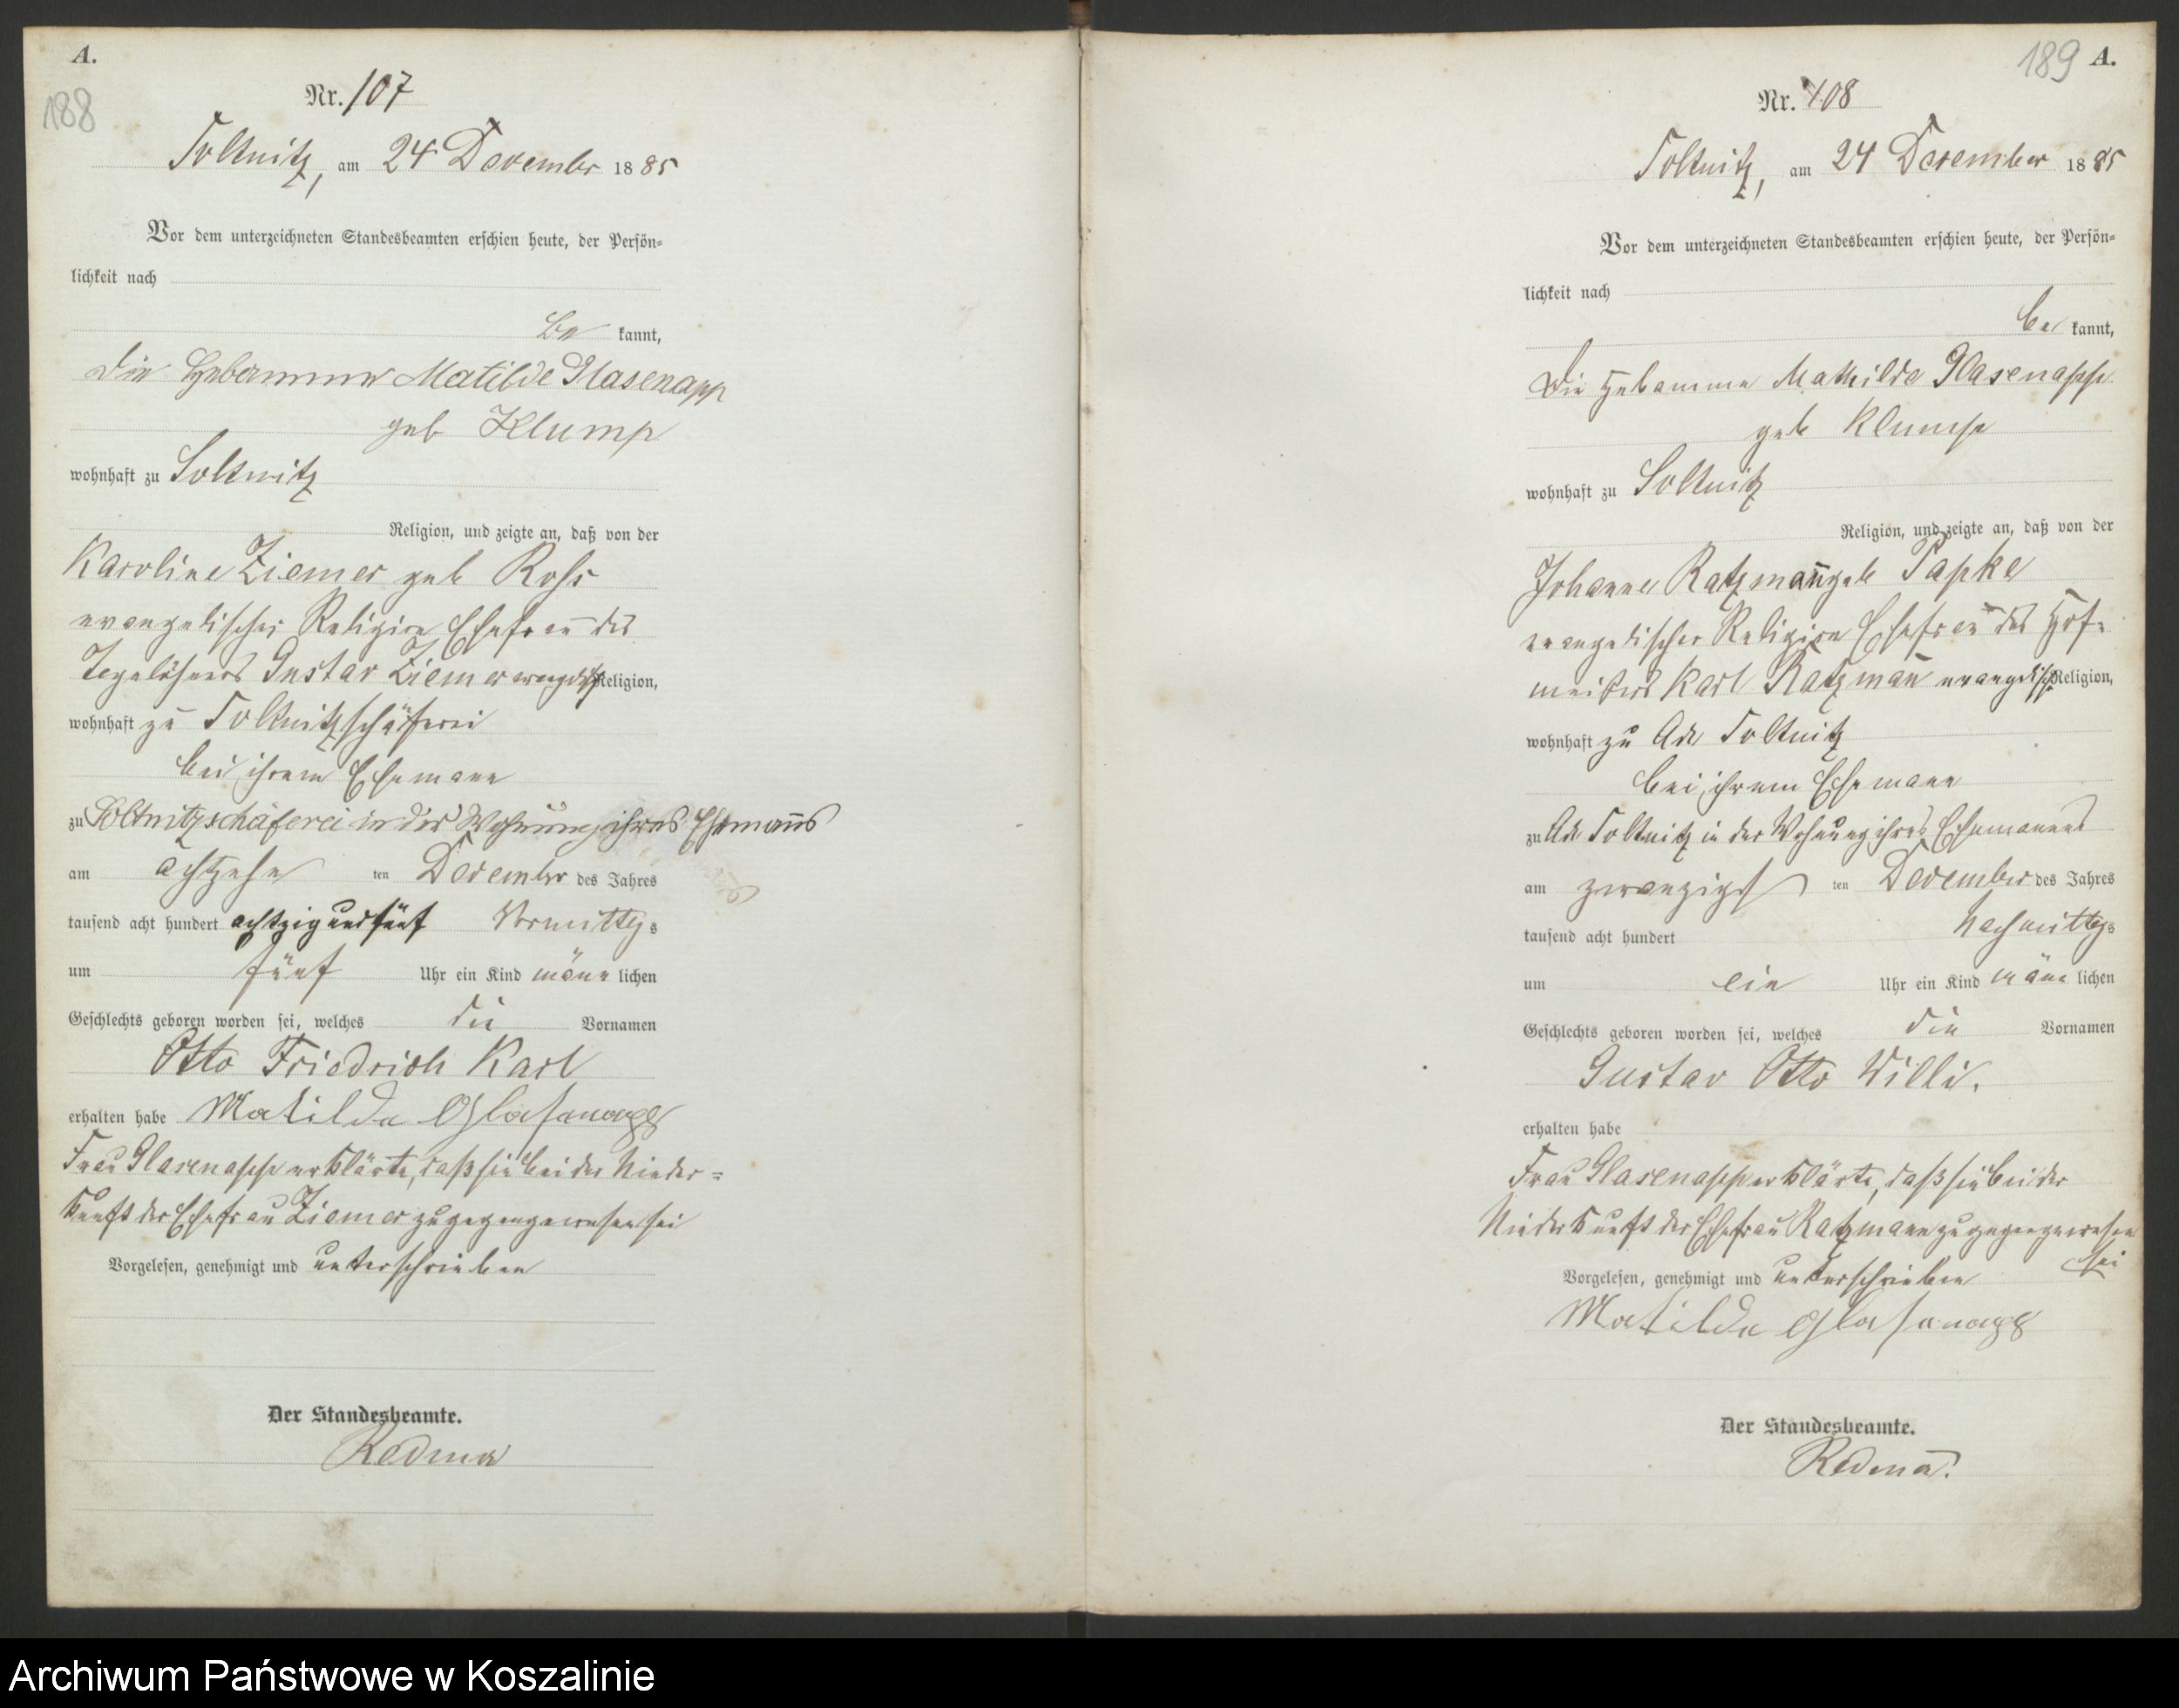 A.
188
Nr. 107
Soltnitz, am 24 December 1885
Vor dem unterzeichneten Standesbeamten erschien heute, der Persön=
lichkeit nach
be kannt,
Die Hebamme Matilde Glasenapp
geb Klump
wohnhaft zu Soltnitz
Religion, und zeigte an, daß von der
Karoline Ziemer geb
evangelischer Religion Ehefrau des
Tagelöhners Gustav Ziemer evangelisch Religion,
wohnhaft zu Soltnitzschäferei
bei ihrem Ehemann
zu Soltnitzschäferei in der Wohnung ihres Ehemanns
am achtzehn ten December des Jahres
tausend acht hundert achtzig und fünf Vormittags
um fünf Uhr ein Kind männ lichen
Geschlechts geboren worden sei, welches die Vornamen
Otto Friedrich Karl
erhalten habe Matilda Glasenapp
Frau Glasenapp erklärte, daß sie bei der Nieder=
kunft der Ehefrau Ziemer zugegen gewesen sei
Vorgelesen, genehmigt und unterschrieben
Der Standesbeamte.
189 A.
Nr. 108
Soltnitz, am 24 December 1885
Vor dem unterzeichneten Standesbeamten erschien heute, der Persön=
lichkeit nach
be kannt,
Die Hebamme Mathilde Glasenapp
geb Klump
wohnhaft zu Soltnitz
Religion, und zeigte an, daß von der
Johanne Ratzmann geb Papke
evangelischer Religion Ehefrau des Hof=
meisters Karl Ratzmañ evangelisch Religion,
wohnhaft zu Adl Soltnitz
bei ihrem Ehemann
zu Adl Soltnitz in der Wohnung ihres Ehemannes
am zwanzigst ten December des Jahres
tausend acht hundert Nachmittags
um ein Uhr ein Kind männ lichen
Geschlechts geboren worden sei, welches die Vornamen
Gustav Otto Willi.
erhalten habe
Frau Glasenapp erklärte, daß sie bei der
Niederkunft der Ehefrau Ratzmann zugegen gewesen
sei
Vorgelesen, genehmigt und unterschrieben
Matilda Glasenapp
Der Standesbeamte.
Archiwum Państwowe w Koszalinie